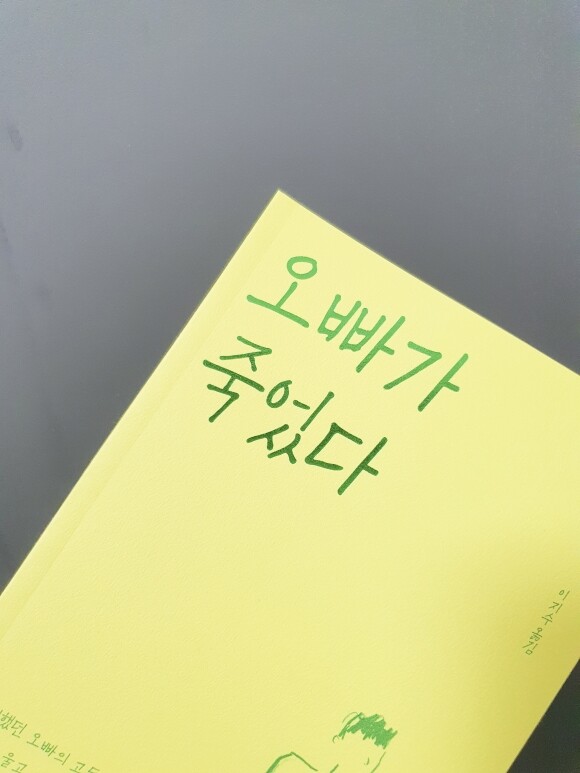 오빠가
죽었다
이지수 옮김
했던 오빠의 고독
울고